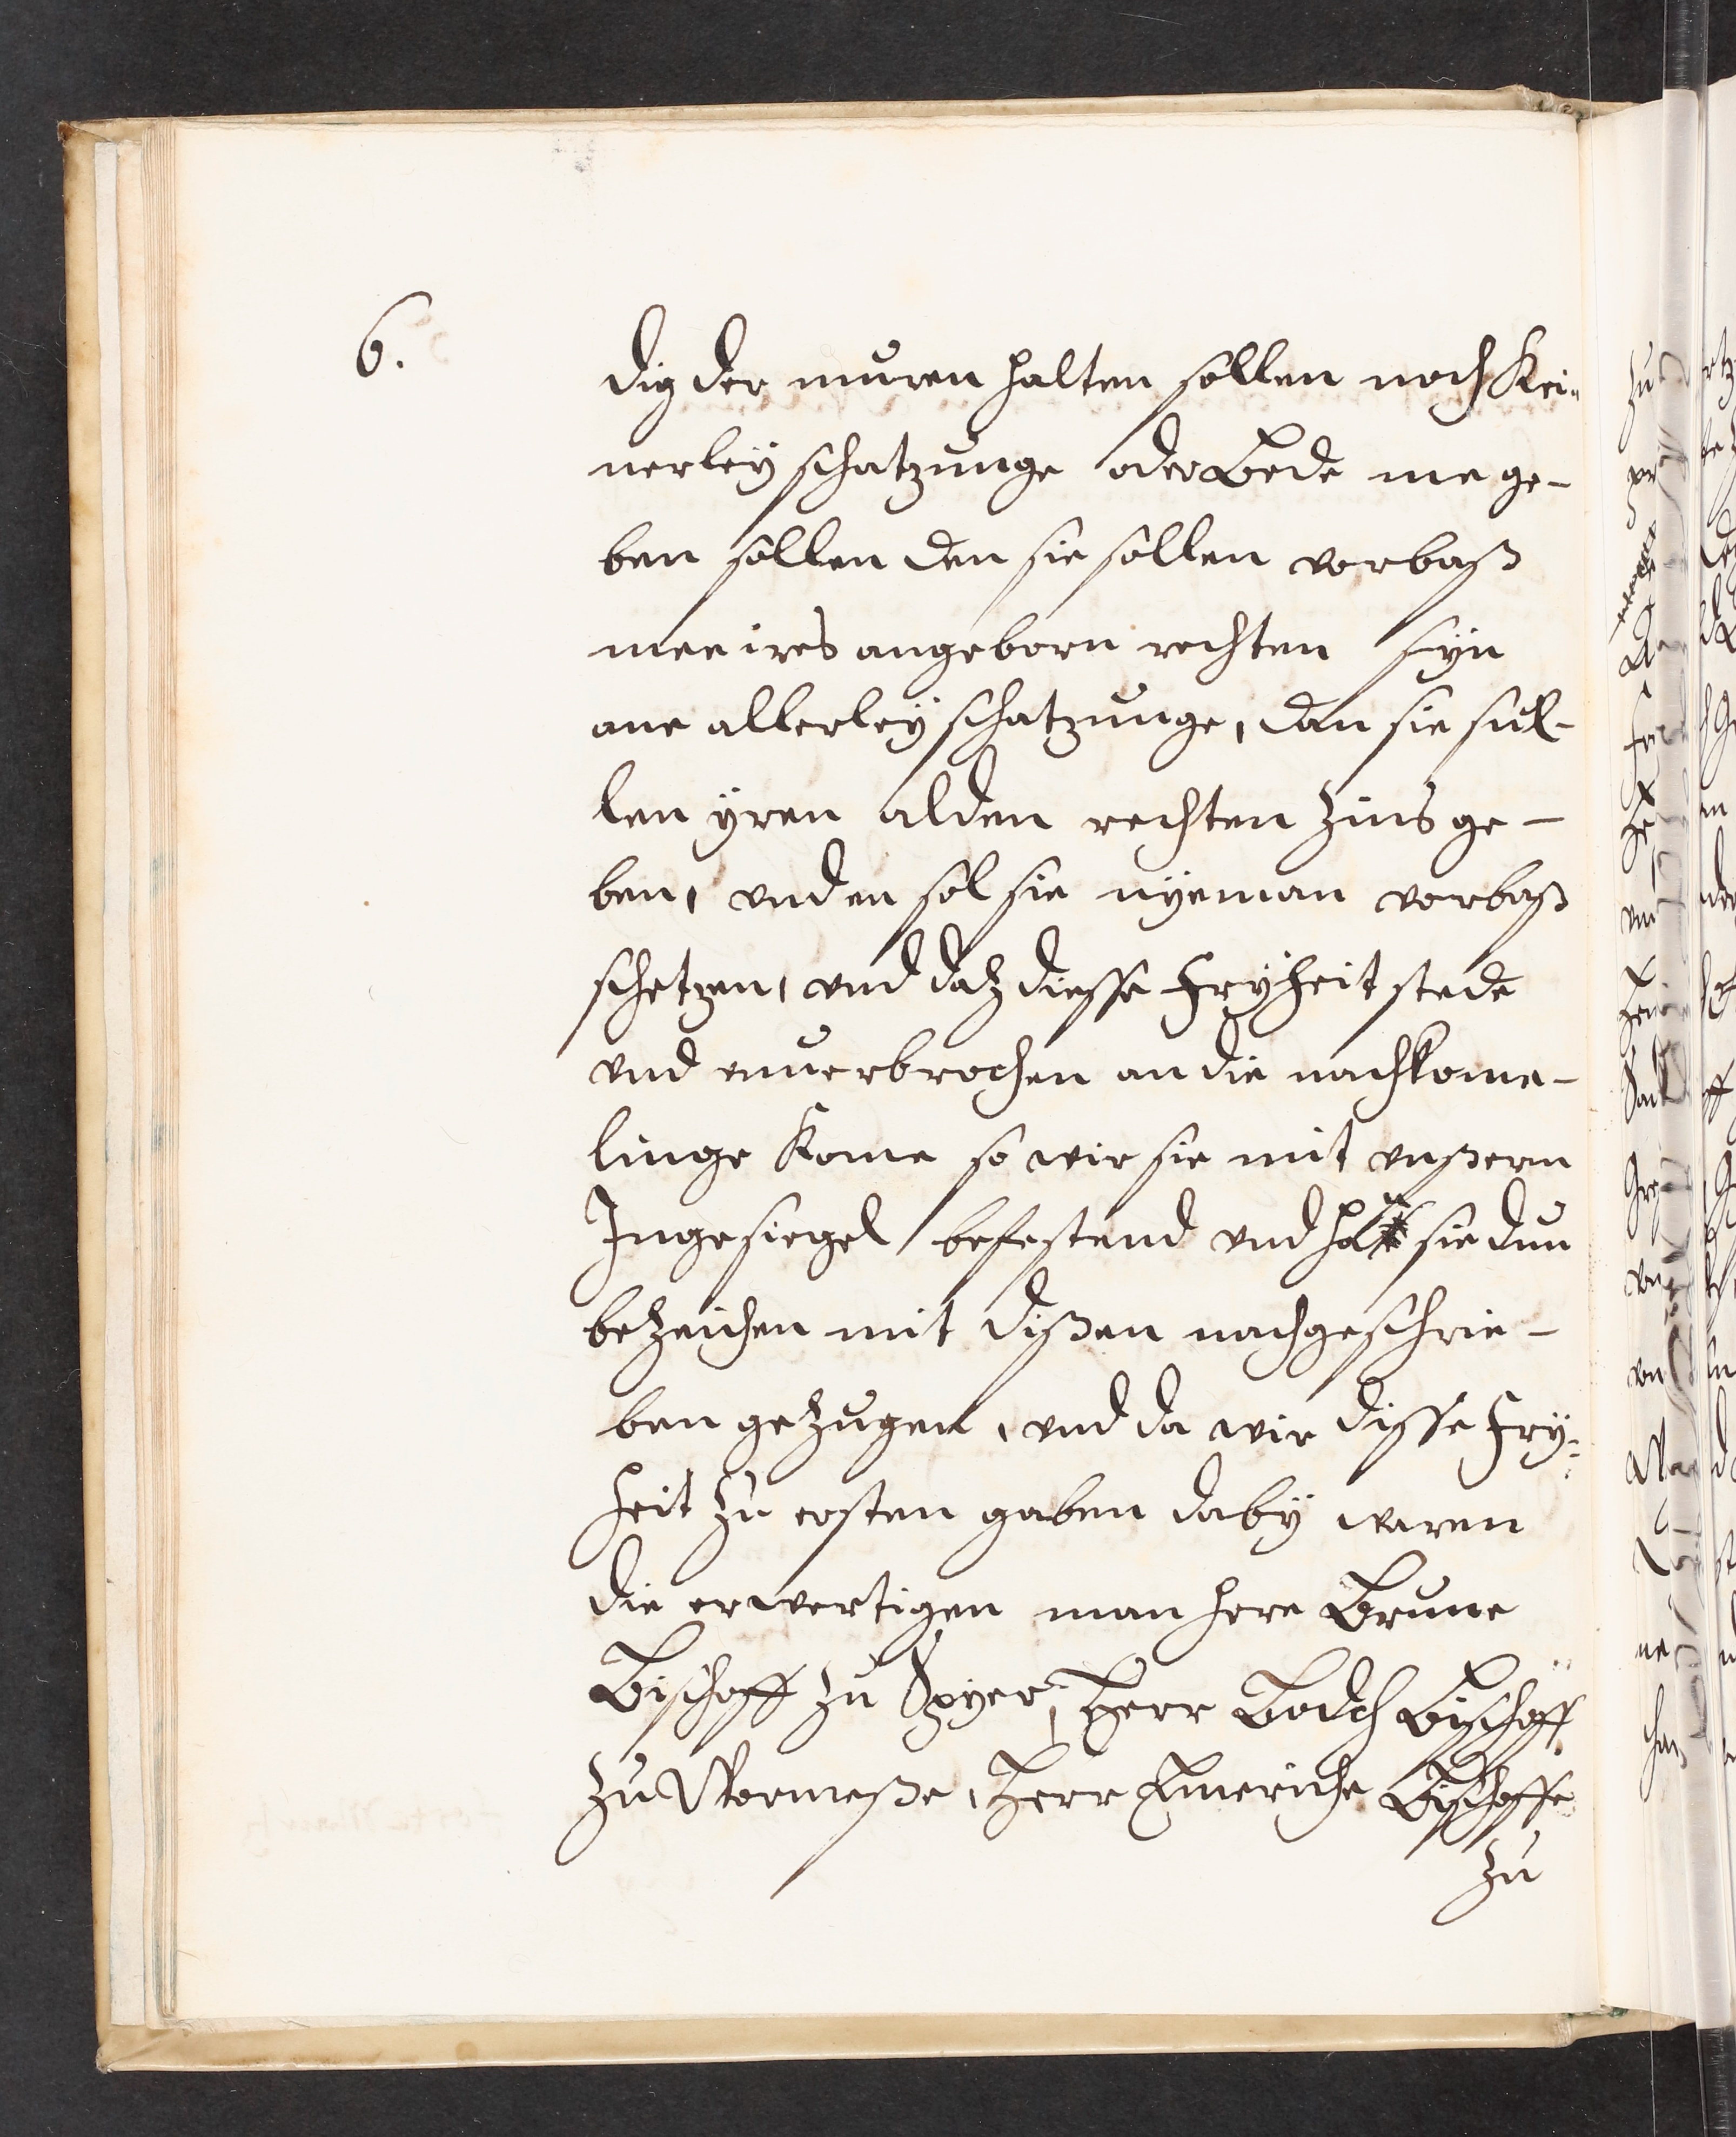 6.
dig der muren halten sollen noch kei-
nerley schatzunge oder bede me ge-
ben sollen den sie sollen vorbaß
mee ires angeborn rechten syn
ane allerley schatzunge, dan sie sul-
len yren alden rechten zins ge-
ben, vnd en sol sie nyeman vorbaß
schetzen, vnd daz diesse Fryheit stede
vnd vnuerbrochen an die nachkome-
linge kome so wir sie mit vnßerm
Ingesiegel befestend vnd sie dun
bezeichen mit dißen nachgeschrie-
ben gezugen, vnd da wir disse Fry-
heit zu ersten gaben daby waren
die erwertigen man here Brune
Bischoff zu Spyer, Herr Bischoff
zu Wormeße, Herr Emeriche Bischoffe
zu